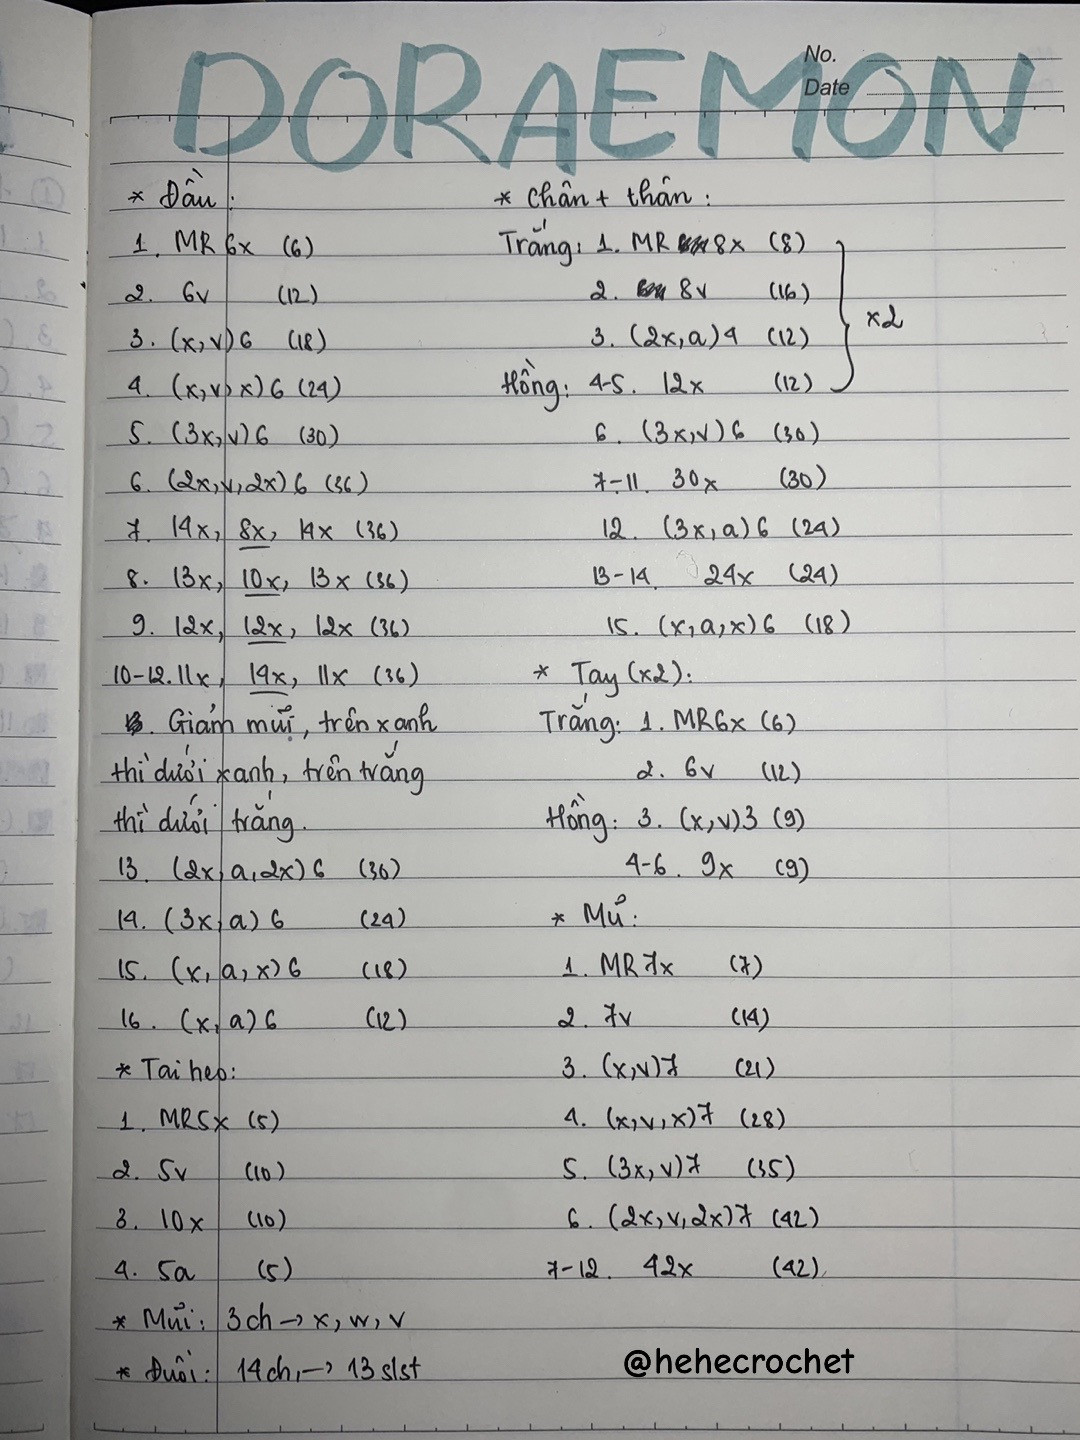 DORAEMON
No.
Date
* Đầu:
1. MR 6x (6)
2. 6v (12)
3. (x,v)6 (18)
4. (x,v,x)6 (24)
5. (3x,v)6 (30)
6. (2x,v,2x)6 (36)
7. 14x, 8x, 14x (36)
8. 13x, 10x, 13x (36)
9. 12x, 12x, 12x (36)
10-12. 11x, 14x, 11x (36)
Giảm mũi, trên xanh
thì dưới xanh, trên trắng
thì dưới trắng.
13. (2x,a,2x)6 (30)
14. (3x,a)6 (24)
15. (x,a,x)6 (18)
16. (x,a)6 (12)
* Tai heo:
1. MR5x (5)
2. 5v (10)
3. 10x (10)
4. 5a (5)
* Mũi: 3ch → x, w, v
* Đuôi: 14ch, → 13 slst
* Chân + thân:
Trắng: 1. MR 8x (8)
2. 8v (16)
3. (2x,a)4 (12)
Hồng: 4-5. 12x (12)
x2
6. (3x,v)6 (30)
7-11. 30x (30)
12. (3x,a)6 (24)
13-14. 24x (24)
15. (x,a,x)6 (18)
* Tay (x2):
Trắng: 1. MR6x (6)
2. 6v (12)
Hồng: 3. (x,v)3 (9)
4-6. 9x (9)
* Mũ:
1. MR 7x (7)
2. 7v (14)
3. (x,v)7 (21)
4. (x,v,x)7 (28)
5. (3x,v)7 (35)
6. (2x,v,2x)7 (42)
7-12. 42x (42)
@hehecrochet